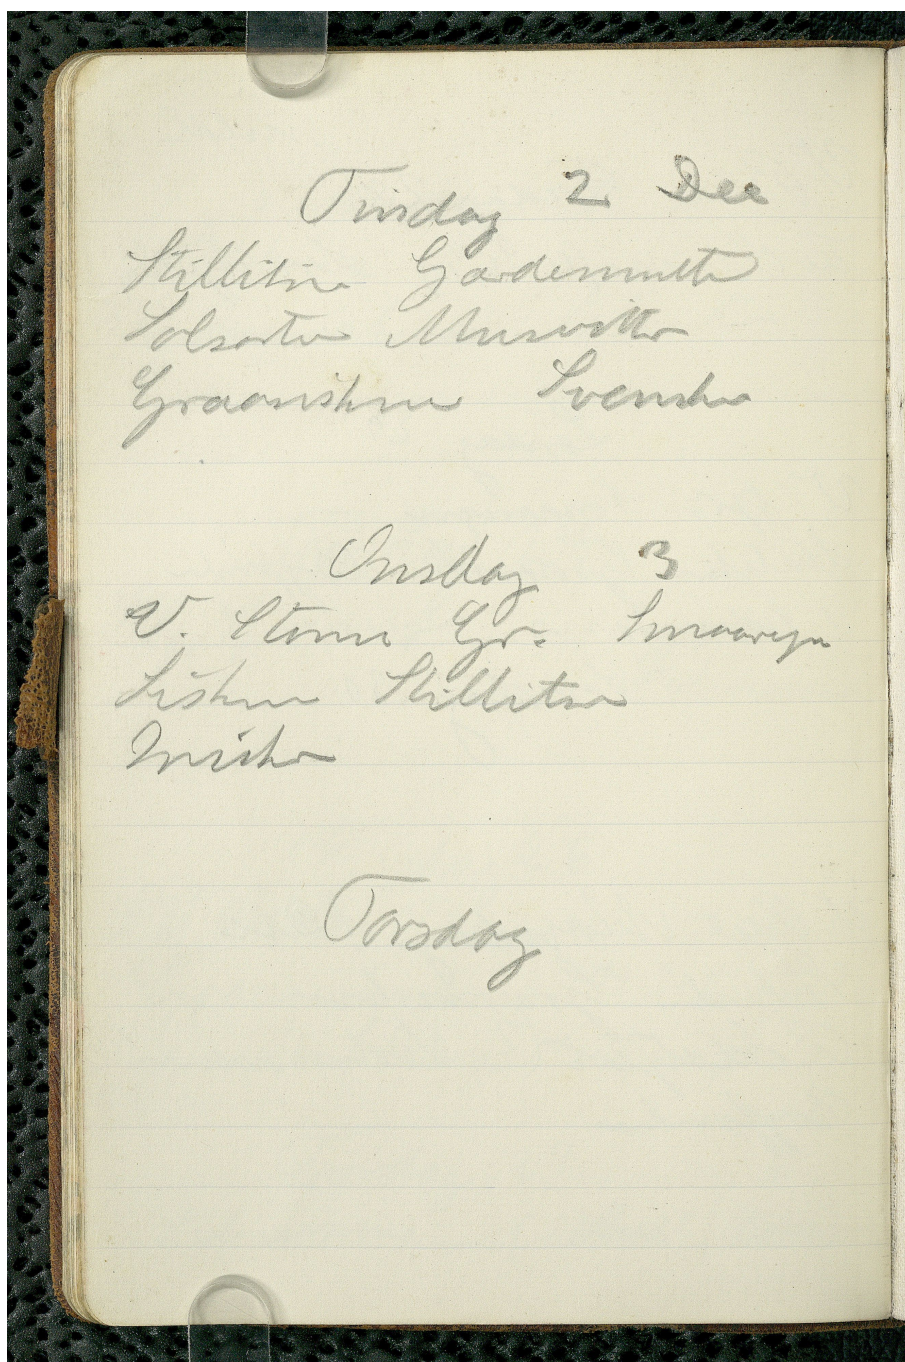 Tirsdag 2 Dec
Stillitse Gærdesmutte
Solsorte Musvitter
Graaeniskener Svenske
Onsdag 3
V. Storm Gr.
Siskener Stillitser
Irisker
Torsdag